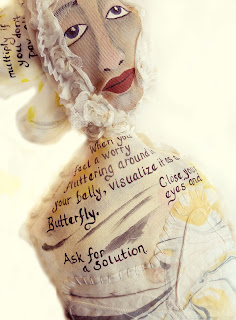 multiply if
you don't
pow
When you
feel a worry
fluttering around in
your belly, visualize it as a
Butterfly.
Close your
eyes and
Ask for
a solution